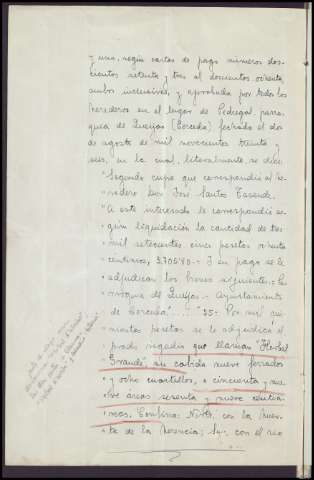 y uno, según cartas de pago números dos-
cientos setenta y tres al doscientos ochenta,
ambos inclusives, y aprobada por todos los
herederos en el lugar de Pedregal, parro-
quia de Queijas (Cerceda) fechada el dos
de agosto de mil novecientos treinta y
seis, en la cual, literalmente, se dice:
"Segundo cupo que correspondió al he-
redero Don José Santos
"A este interesado le correspondió se-
gún liquidación la cantidad de tres
mil setecientas cinco pesetas ochenta
céntimos, 3.705'80.- Y en pago se le
adjudican los bienes siguientes:- Pa-
rroquia de Queijas.- Ayuntamiento
de Cerceda"..... "35.- Por mil qui-
nientas pesetas se le adjudica el
prado regadío que llaman "Herbal
Grande", su cabida nueve ferrados
y ocho cuartillos, o cincuenta y nue-
ve áreas sesenta y nueve centiá-
reas. Confina: Norte, con la
de la herencia; Sur, con el río